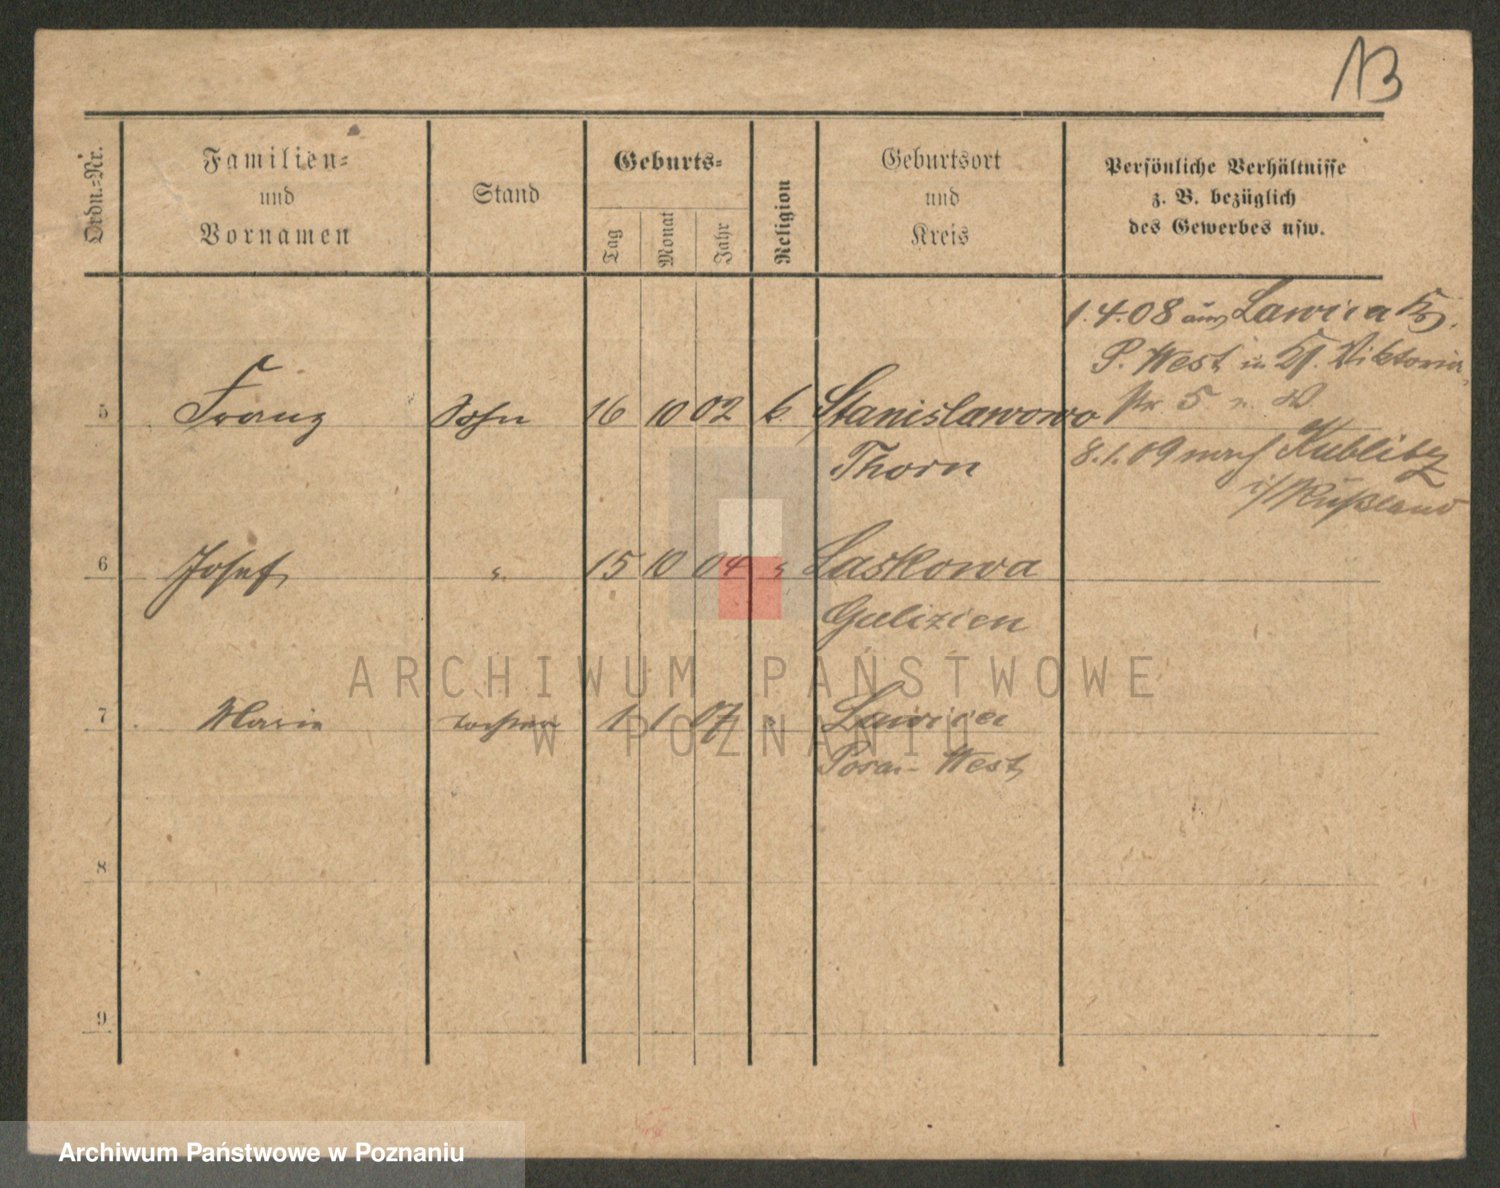 13
Ordn.-Nr.
Familien-
und
Vornamen
Stand
Geburts-
Tag
Monat
Jahr
Religion
Geburtsort
und
Kreis
Persönliche Verhältnisse
z. B. bezüglich
des Gewerbes usw.
1.4.08 aus Lawica Kr.
P. West in St. Viktoria
str 5
8.1.09 nach Kublitz
i/ Rußland
5 Franz Sohn 16 10 02 k. Stanislawowo
Thorn
6 Josef " 15 10 04 " Laskowa
Galizien
7 Marie Tochter 1 1 07 " Lawica
Posen-West
8
9
ARCHIWUM PAŃSTWOWE
W POZNANIU
Archiwum Państwowe w Poznaniu